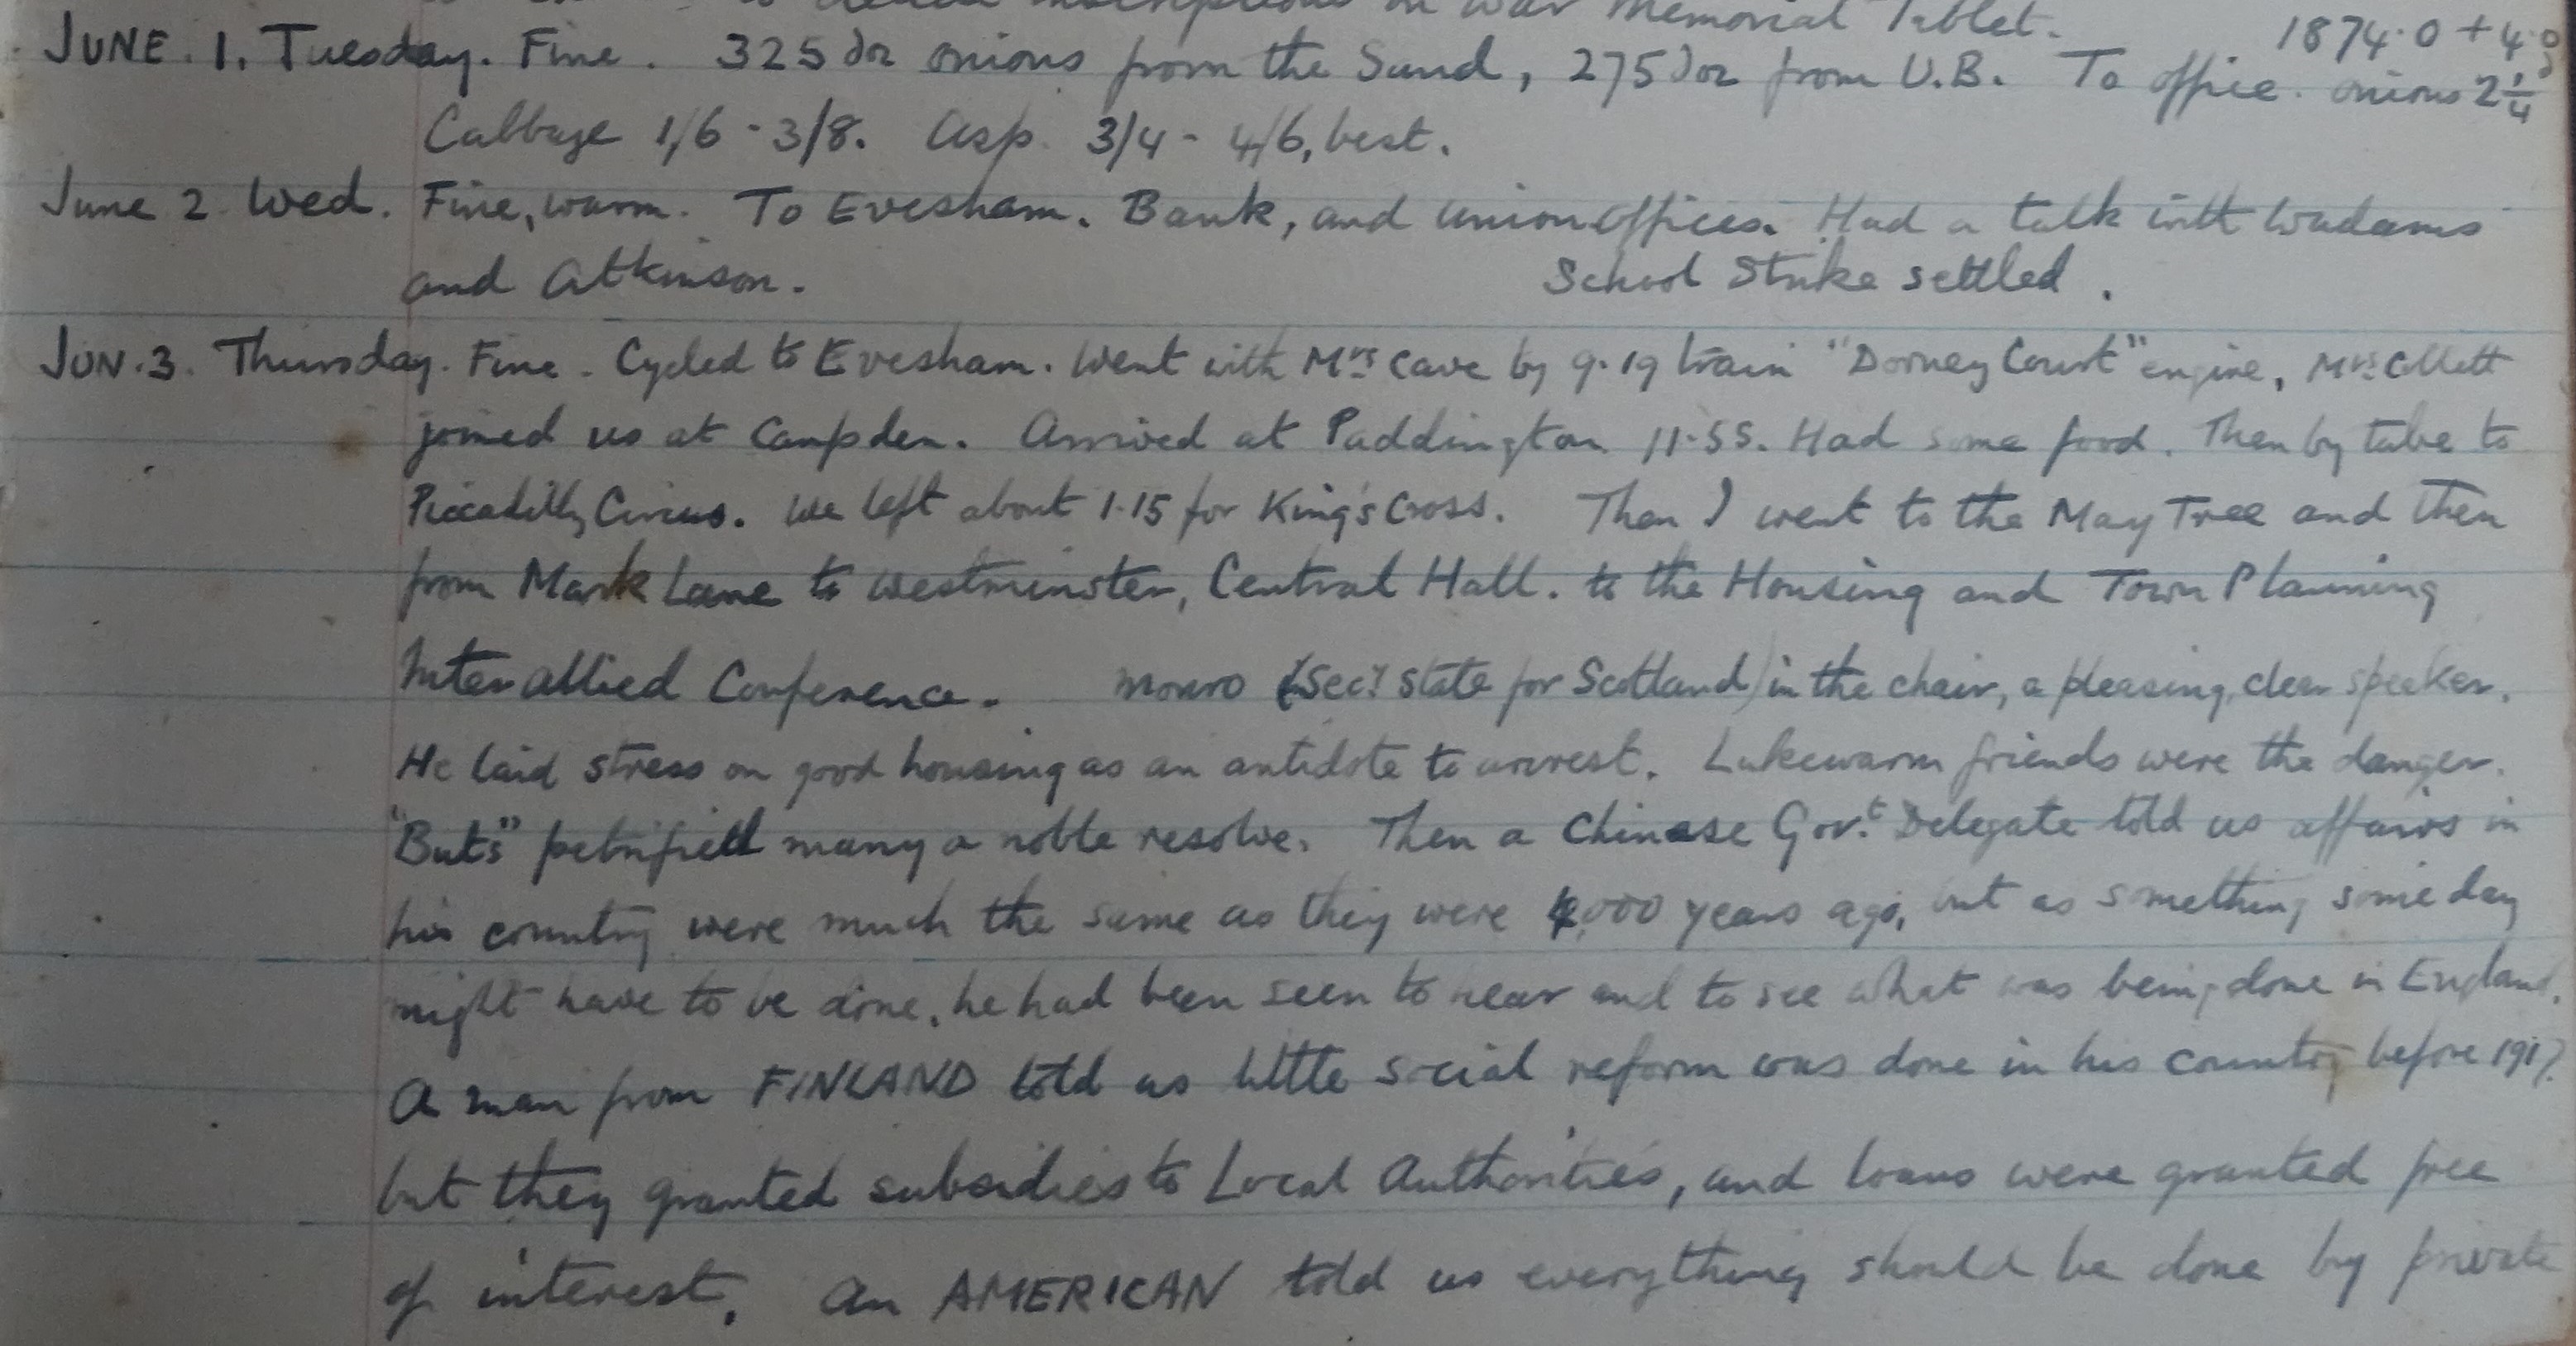 to decide inscriptions on War Memorial Tablet.
1874.0 + 4.0
JUNE. 1. Tuesday. Fine. 325 doz onions from the Sand, 275 doz from U.B. To office. onions 2 1/4
Cabbage 1/6 - 3/8. Asp. 3/4 - 4/6, best.
June 2 Wed. Fine, warm. To Evesham. Bank, and Union Offices. Had a talk with Wadams
and Atkinson. School Strike settled.
JUN. 3. Thursday. Fine. Cycled to Evesham. Went with Mrs Cave by 9.19 train "Dorney Court" engine, Mrs Collett
joined us at Campden. Arrived at Paddington 11.55. Had some food. Then by tube to
Piccadilly Circus. We left about 1.15 for King's Cross. Then I went to the May Tree and then
from Mark Lane to Westminster, Central Hall. to the Housing and Town Planning
Inter allied Conference. Monro (Secy State for Scotland) in the chair, a pleasing, clear speaker.
He laid stress on good housing as an antidote to unrest. Lukewarm friends were the danger.
"Buts" petrified many a noble resolve. Then a Chinese Govt Delegate told us affairs in
his country were much the same as they were 4,000 years ago, but as something some day
might have to be done, he had been seen to hear and to see what was being done in England.
A man from FINLAND told us little social reform was done in his country before 1917.
but they granted subsidies to Local Authorities, and loans were granted free
of interest. An AMERICAN told us everything should be done by private